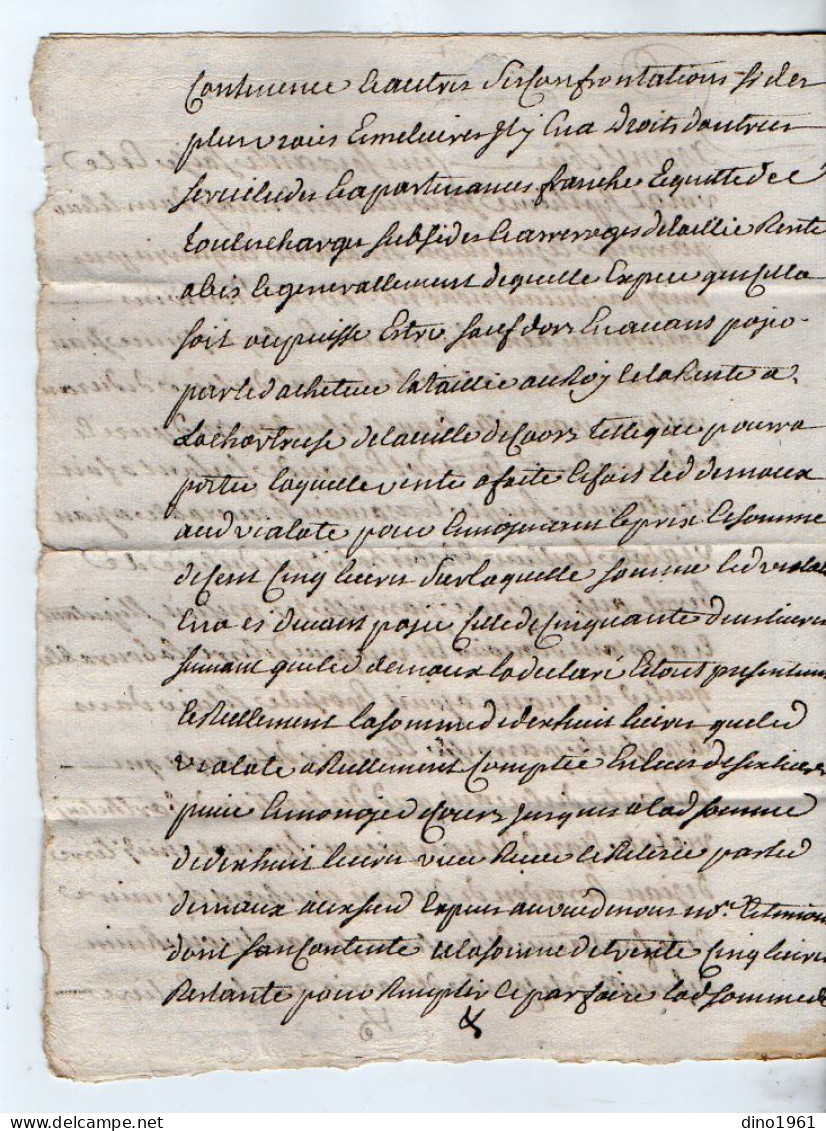 Contenence & autres ses Confrontations si des
plus vraies & meilieures il y en a droits d'autres
servitudes & apartenances franche & quitte de
toutes charges subsides & arrerages de taillie Rente
abis & generallement de quelle Espece que Cella
soit ou puisse Estre sauf dors En avans payer
par led acheteur la taillie au Roy & la Rente a
La chartreuse de la ville de Caors telle que pourra
porter laquelle vente a faite & fait led demaux
aud vialate pour & moyenant le prix & somme
de Cent Cinq livres sur laquelle somme led vialate
En a cy devant payé Celle de Cinquante deux livres
suivant que led demaux la declaré & tout presentement
& Rellement la somme de dix huit livres que led
vialate a Rellement Comptée En Ecus de six livres
piece & monoye de Cours jusques a lad somme
de dix huit livres veue Receue & Retirée par led
demaux au veu de nous no.re & temoins
dont s'en Contente & la somme de trente Cinq livres
Restante pour Remplir & parfaire lad somme de
dino1961